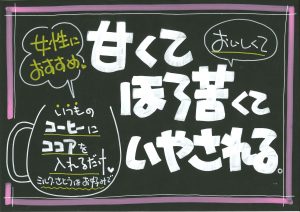 女性に
おすすめ!
おいしくて
甘くて
ほろ苦くて
いやされる。
いつもの
コーヒーに
ココアを
入れるだけ
ミルク・さとうはお好みで